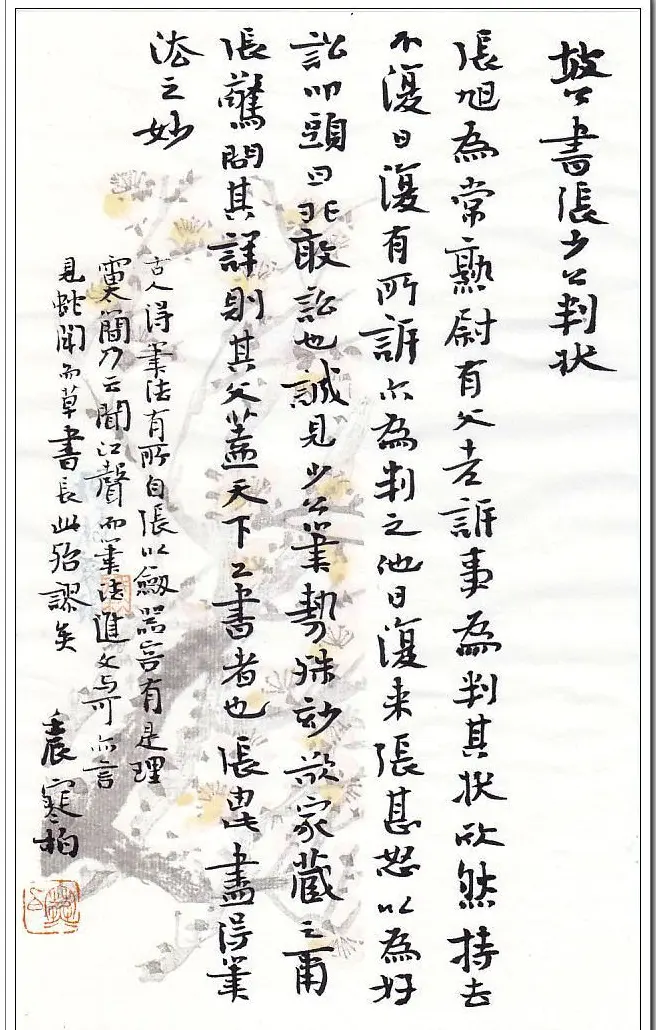 坡公書張少公判狀
張旭為常熟尉有父老訴事為判其狀欣然持去
不復日復有所訴亦為判之他日復來張甚怒以為好
訟叩頭曰非敢訟也誠見少公筆勢殊妙欲家藏之爾
張驚問其詳則其父蓋天下工書者也張由此盡得筆
法之妙
古人得筆法有所自張以劍器容有是理
雷太簡乃云聞江聲而筆法進文與可亦言
見蛇鬥而草書長此殆謬矣
寒柏